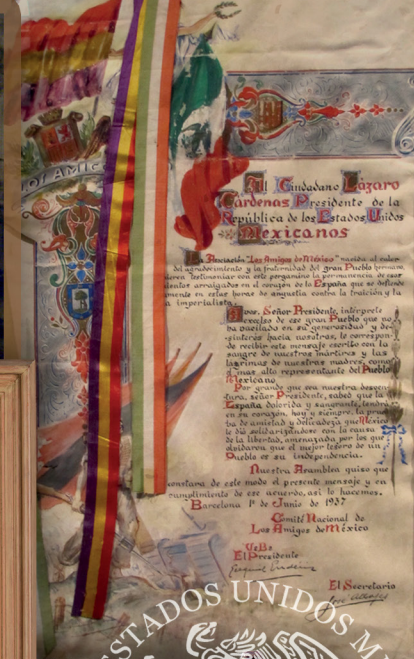 LOS AMIG
Al Ciudadano Lázaro
Cárdenas Presidente de la
República de los Estados Unidos
Mexicanos
La Asociación "Los Amigos de México" unida al calor
del agradecimiento y la fraternidad del gran Pueblo hermano,
testimoniar con este pergamino la permanencia de sus
arraigados en el corazón de la España que se defiende
mente en estas horas de angustia contra la traición y la
imperialista.
A vos, Señor Presidente, intérprete
excelso de ese gran Pueblo que no
ha vacilado en su generosidad y de-
sinterés hacia nosotros, le correspon-
de recibir este mensaje escrito con la
sangre de nuestros mártires y las
lágrimas de nuestras madres, como
más alto representante del Pueblo
Mexicano
Por grande que sea nuestra desven-
tura, señor Presidente, sabed que la
España dolorida y sangrante, tendrá
en su corazón, hoy y siempre, la prue-
ba de amistad y delicadeza que México
le dió solidarizándose con la causa
de la libertad, amenazada por los que
olvidaron que el mejor tesoro de un
Pueblo es su independencia.
Nuestra Asamblea quiso que
constara de este modo el presente mensaje y en
cumplimiento de ese acuerdo, así lo hacemos.
Barcelona 1º de Junio de 1937
Comité Nacional de
Los Amigos de México
Vº Bº
El Presidente
El Secretario
ESTADOS UNIDOS M